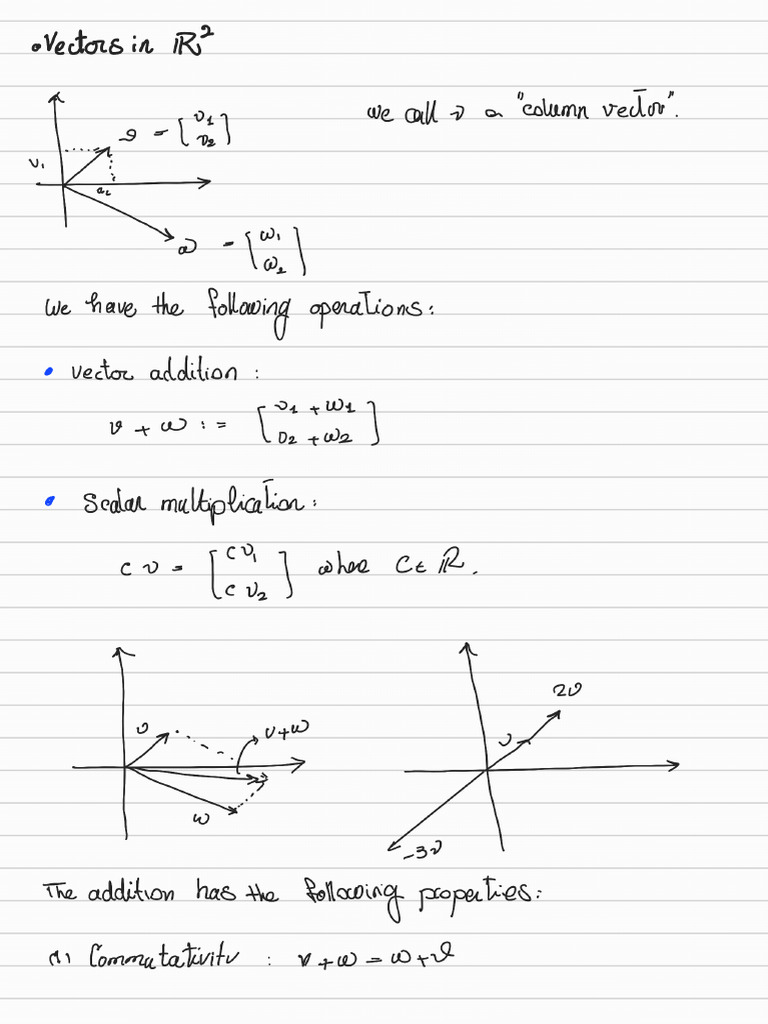 • Vectors in ℝ²
we call v a "column vector".
v = [v₁ v₂]
v₁
w = [w₁ w₂]
We have the following operations:
• vector addition :
v + w := [v₁ + w₁ v₂ + w₂]
• Scalar multiplication:
c v = [c v₁ c v₂] where C ∈ ℝ.
v
v+w
w
2v
v
-3v
The addition has the following properties:
(1) Commutativity : v + w = w + v